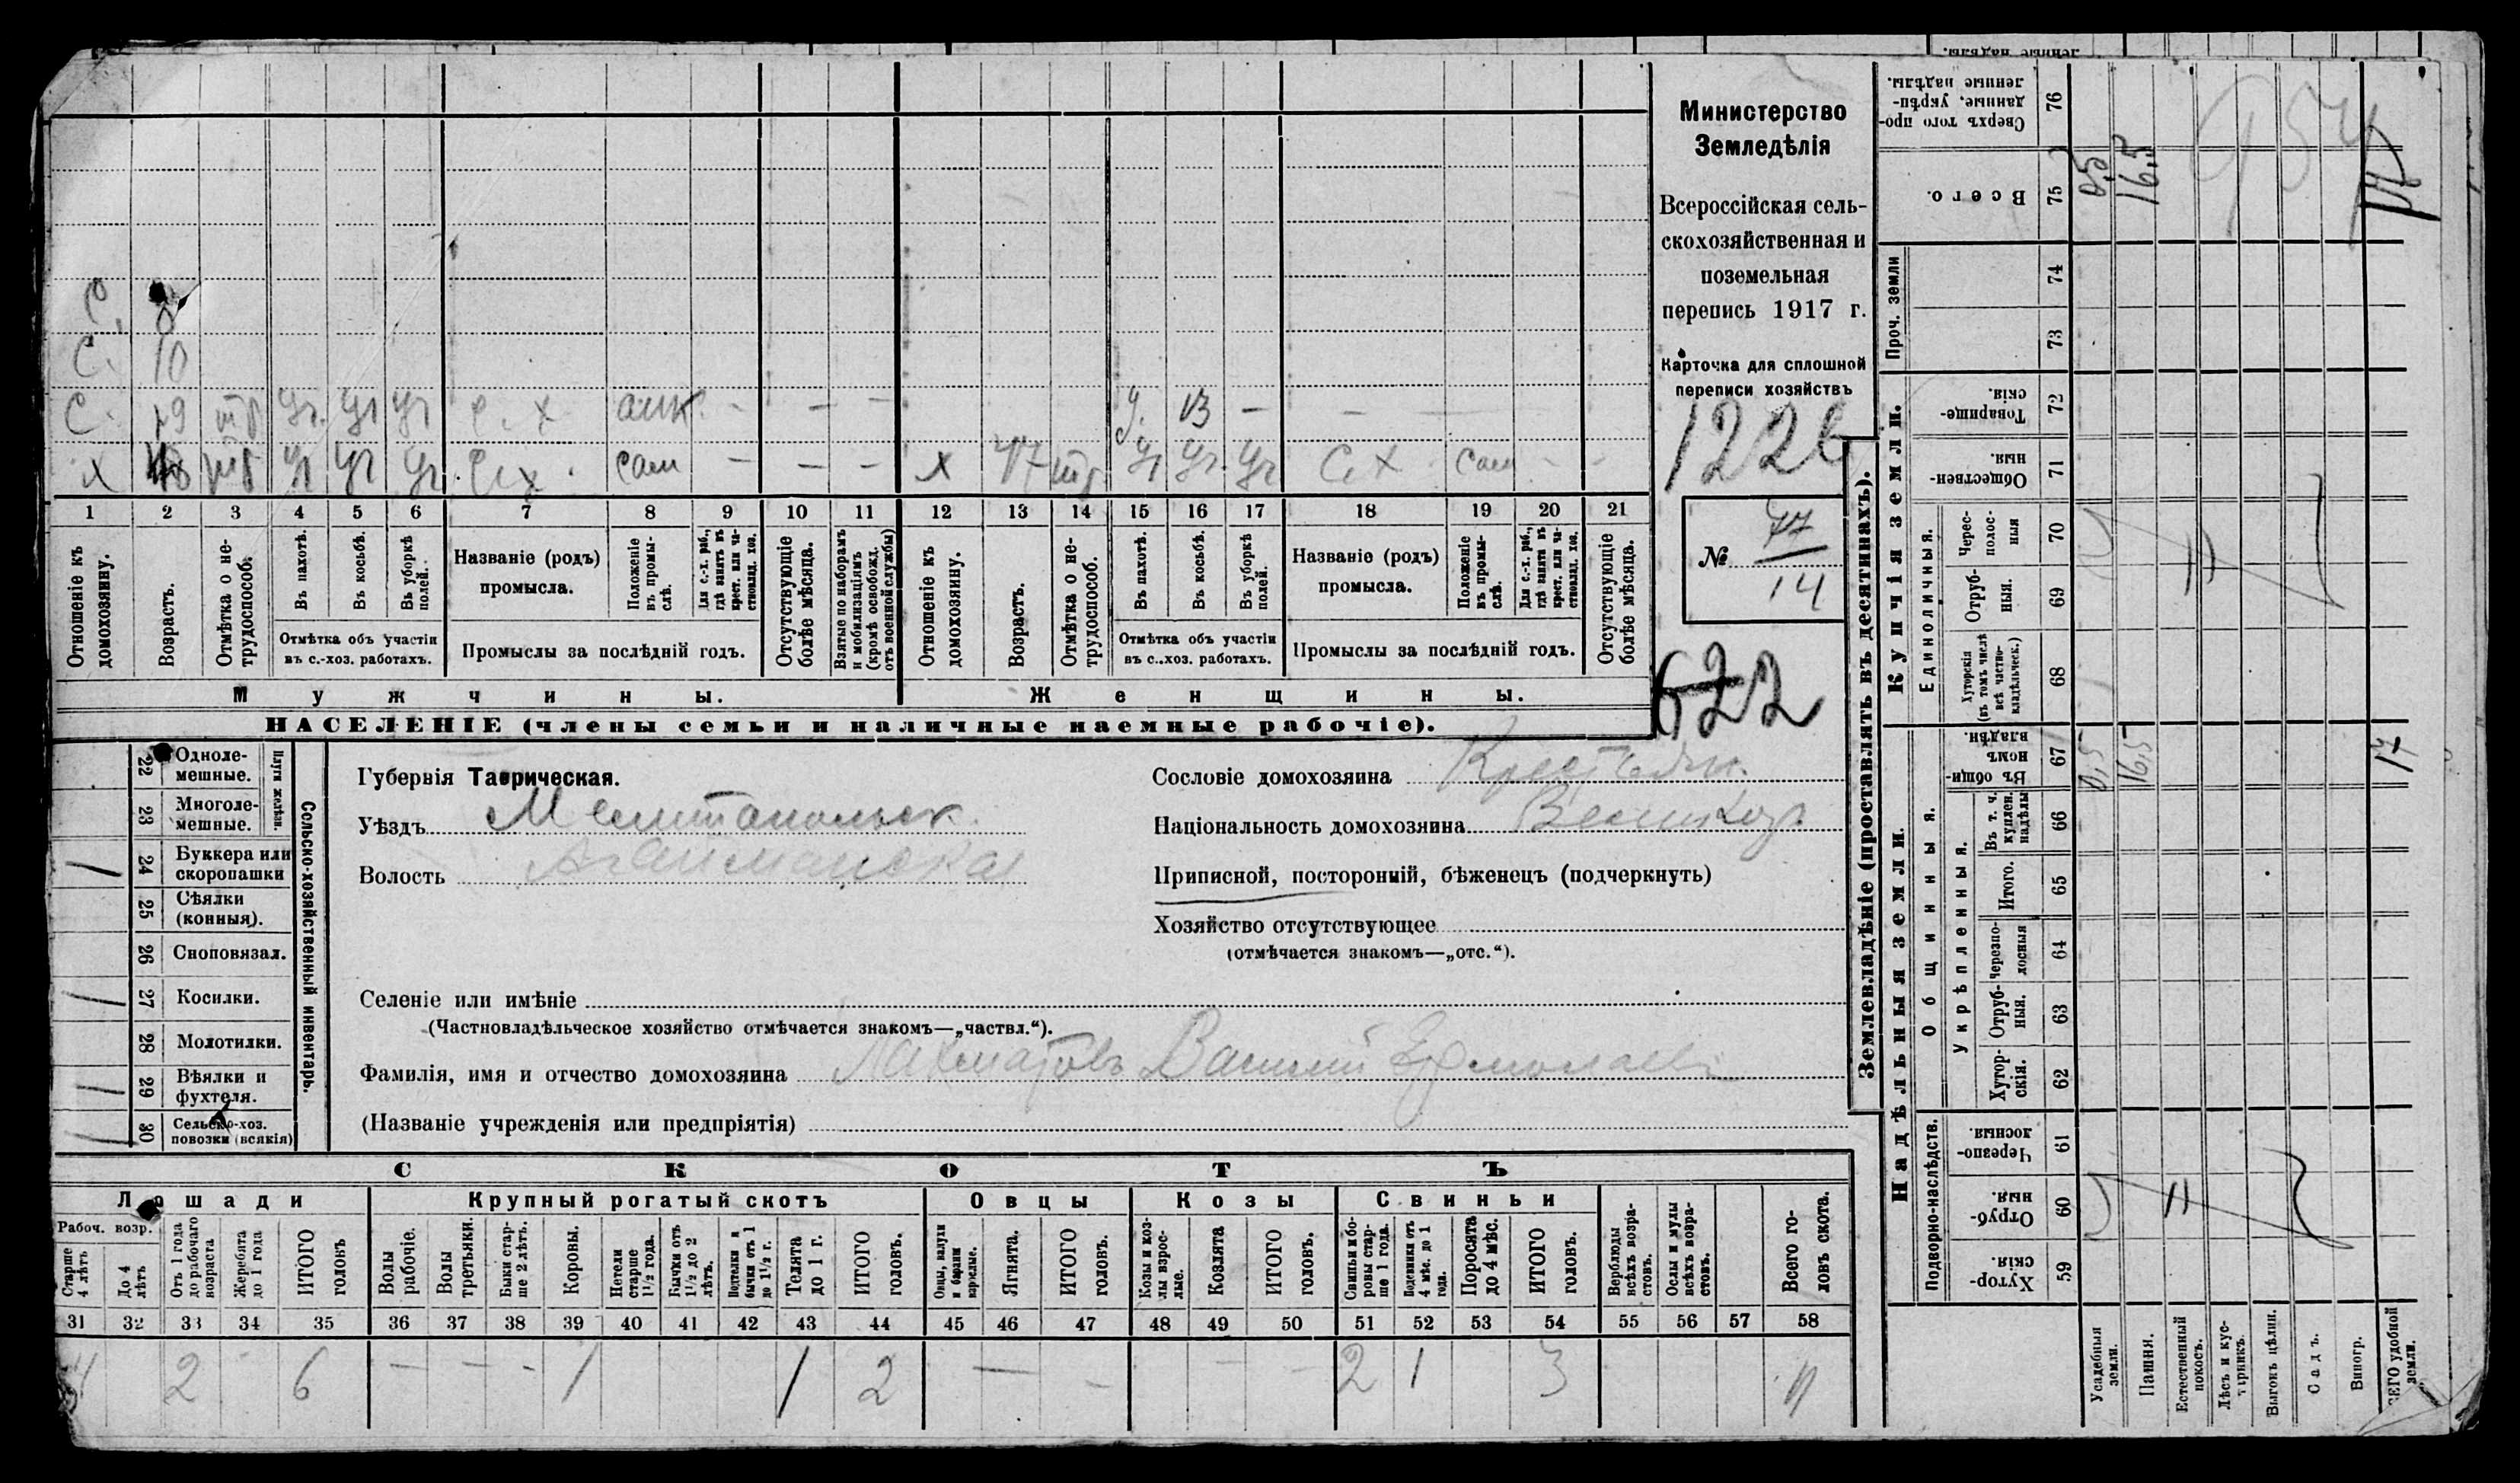 С. 8
С. 10
С. 19 тр уч. уч уч с. х. – – – у. 13 – –
х тр уч уч уч с.х. сам – – – х 47 тр. уч уч. уч с.х сам – –
1 2 3 4 5 6 7 8 9 10 11 12 13 14 15 16 17 18 19 20 21
Отношеніе къ домохозяину.
Возрастъ.
Отмѣтка о нетрудоспособ.
Въ пахотѣ.
Въ косьбѣ.
Въ уборкѣ полей.
Отмѣтка объ участіи
въ с.-хоз. работахъ.
Названіе (родъ)
промысла.
Положеніе въ промыслѣ.
Для с.-х. раб., гдѣ занятъ въ крест. или частновлад. хоз.
Промыслы за послѣдній годъ.
Отсутствующіе болѣе мѣсяца.
Взятые по наборамъ и мобилизаціямъ (кромѣ освобожд. отъ военной службы)
Отношеніе къ домохозяину.
Возрастъ.
Отмѣтка о нетрудоспособ.
Въ пахотѣ.
Въ косьбѣ.
Въ уборкѣ полей.
Отмѣтка объ участіи
въ с..хоз. работахъ.
Названіе (родъ)
промысла.
Положеніе въ промыслѣ.
Для с.-х. раб., гдѣ занята въ крест. или частновлад. хоз.
Промыслы за послѣдній годъ.
Отсутствующіе болѣе мѣсяца.
Мужчины.
Женщины.
НАСЕЛЕНІЕ (члены семьи и наличные наемные рабочіе).
Министерство
Земледѣлія
Всероссійская сель-
скохозяйственная и
поземельная
перепись 1917 г.
Карточка для сплошной
переписи хозяйствъ
1226
№ 77
14
622
Сельско-хозяйственный инвентарь.
Плуги желѣзн.
22 Одноле-
мешные.
23 Многоле-
мешные.
1 24 Буккера или
скоропашки
25 Сѣялки
(конныя).
26 Сноповязал.
1 27 Косилки.
28 Молотилки.
1 29 Вѣялки и
фухтеля.
1 30 Сельско-хоз.
повозки (всякія)
Губернія Таврическая.
Уѣздъ Мелитопольск.
Волость Агайманская
Сословіе домохозяина Крестьян.
Національность домохозяина Великор
Приписной, посторонній, бѣженецъ (подчеркнуть)
Хозяйство отсутствующее
(отмѣчается знакомъ—„отс.“).
Селеніе или имѣніе
(Частновладѣльческое хозяйство отмѣчается знакомъ—„частвл.“).
Фамилія, имя и отчество домохозяина Лахматовъ Василій Ермолаев
(Названіе учрежденія или предпріятія)
СКОТЪ
Лошади
Крупный рогатый скотъ
Овцы
Козы
Свиньи
Рабоч. возр.
Старше 4 лѣтъ
До 4 лѣтъ
Отъ 1 года до рабочаго возраста
Жеребята до 1 года
ИТОГО головъ
Волы рабочіе.
Волы третьяки.
Быки старше 2 лѣтъ.
Коровы.
Нетели старше 1½ года.
Бычки отъ 1½ до 2 лѣтъ.
Подтелки и бычки отъ 1 до 1½ г.
Телята до 1 г.
ИТОГО головъ.
Овцы, валухи и бараны взрослые.
Ягнята.
ИТОГО головъ.
Козы и козлы взрослые.
Козлята
ИТОГО головъ.
Свиньи и боровы старше 1 года.
Подсвинки отъ 4 мѣс. до 1 года.
Поросята до 4 мѣс.
ИТОГО головъ.
Верблюды всѣхъ возрастовъ.
Ослы и мулы всѣхъ возрастовъ.
Всего головъ скота.
31 32 33 34 35 36 37 38 39 40 41 42 43 44 45 46 47 48 49 50 51 52 53 54 55 56 57 58
4 2 6 – – – 1 1 2 – – – – 2 1 3 11
Землевладѣніе (проставлять въ десятинахъ).
Купчія земли.
Надѣльныя земли.
Сверхъ того проданные, укрѣпленные надѣлы. 76
Всего. 75 0,5 16,5 17
Проч. земли
74
73
Товарищескія. 72
Общественныя. 71
Единоличныя.
Черезполосныя 70
Отрубныя. 69
Хуторскія (въ томъ числѣ всѣ частновладѣльческ.) 68
Общинныя.
Въ общинномъ владѣн. 67 0,5 16,5 17
Укрѣпленныя.
Въ т. ч. куплен. надѣлы 66
Итого. 65
Черезполосныя 64
Отрубныя. 63
Хуторскія. 62
Подворно-наслѣдств.
Черезполосныя. 61
Отрубныя. 60
Хуторскія. 59
Усадебныя земли.
Пашня.
Естественный покосъ.
Лѣсъ и кустарникъ.
Выгонъ цѣлин.
Садъ.
Виногр.
ВСЕГО удобной земли.
954